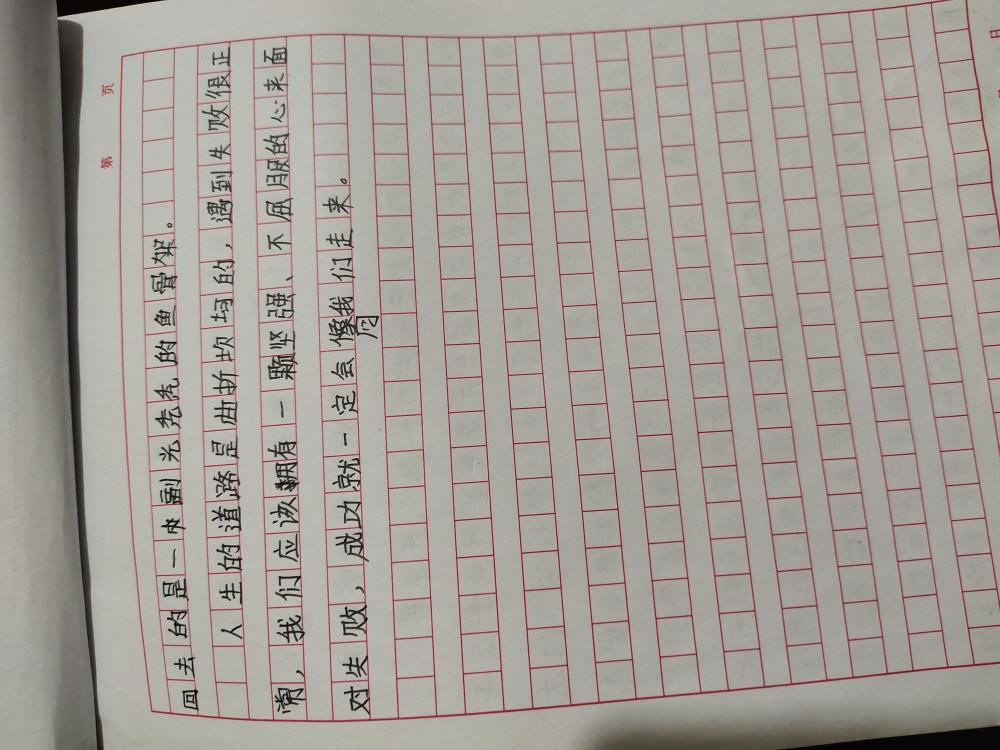 第 页
回去的是一副光秃秃的鱼骨架。
人生的道路是曲折坎坷的，遇到失败很正
常，我们应该拥有一颗坚强、不屈服的心来面
对失败，成功就一定会向我们走来。